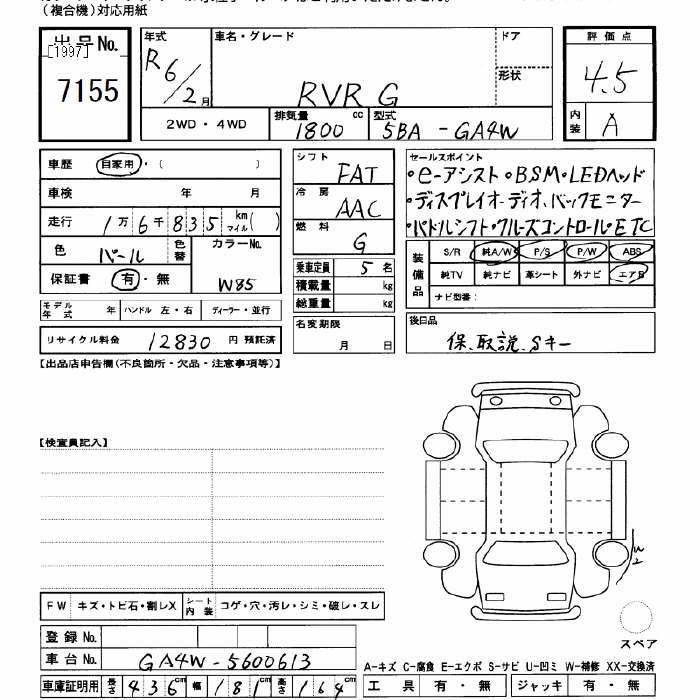 (複合機)対応用紙
出品No.
[1997]
7155
年式
R6/2月
車名・グレード
RVR G
ドア
形状
2WD・4WD
排気量
1800 cc
型式
5BA - GA4W
評価点
4.5
内装
A
車歴 自家用・( )
車検 年 月
走行 1万6千835 km マイル( )
色 パール 色替
カラーNo. W85
保証書 有・無
モデル年式 年 ハンドル 左・右 ディーラー・並行
リサイクル料金 12830 円 預託済
シフト FAT
冷房 AAC
燃料 G
乗車定員 5 名
積載量 kg
総重量 kg
名変期限
月 日
セールスポイント
・e-アシスト・BSM・LEDヘッド
・ディスプレイオーディオ、バックモニター
・パドルシフト・クルーズコントロール・ETC
装備品
S/R 純A/W P/S P/W ABS
純TV 純ナビ 革シート 外ナビ エアB
ナビ型番:
後日品
保、取説、Sキー
【出品店申告欄(不良箇所・欠品・注意事項等)】
【検査員記入】
W2
FW キズ・トビ石・割レX シート内装 コゲ・穴・汚レ・シミ・破レ・スレ
スペア
登録No.
車台No. GA4W-5600613
車庫証明用 長さ 436cm 幅 181cm 高さ 164cm
A-キズ C-腐食 E-エクボ S-サビ U-凹ミ W-補修 XX-交換済
工具 有・無 ジャッキ 有・無